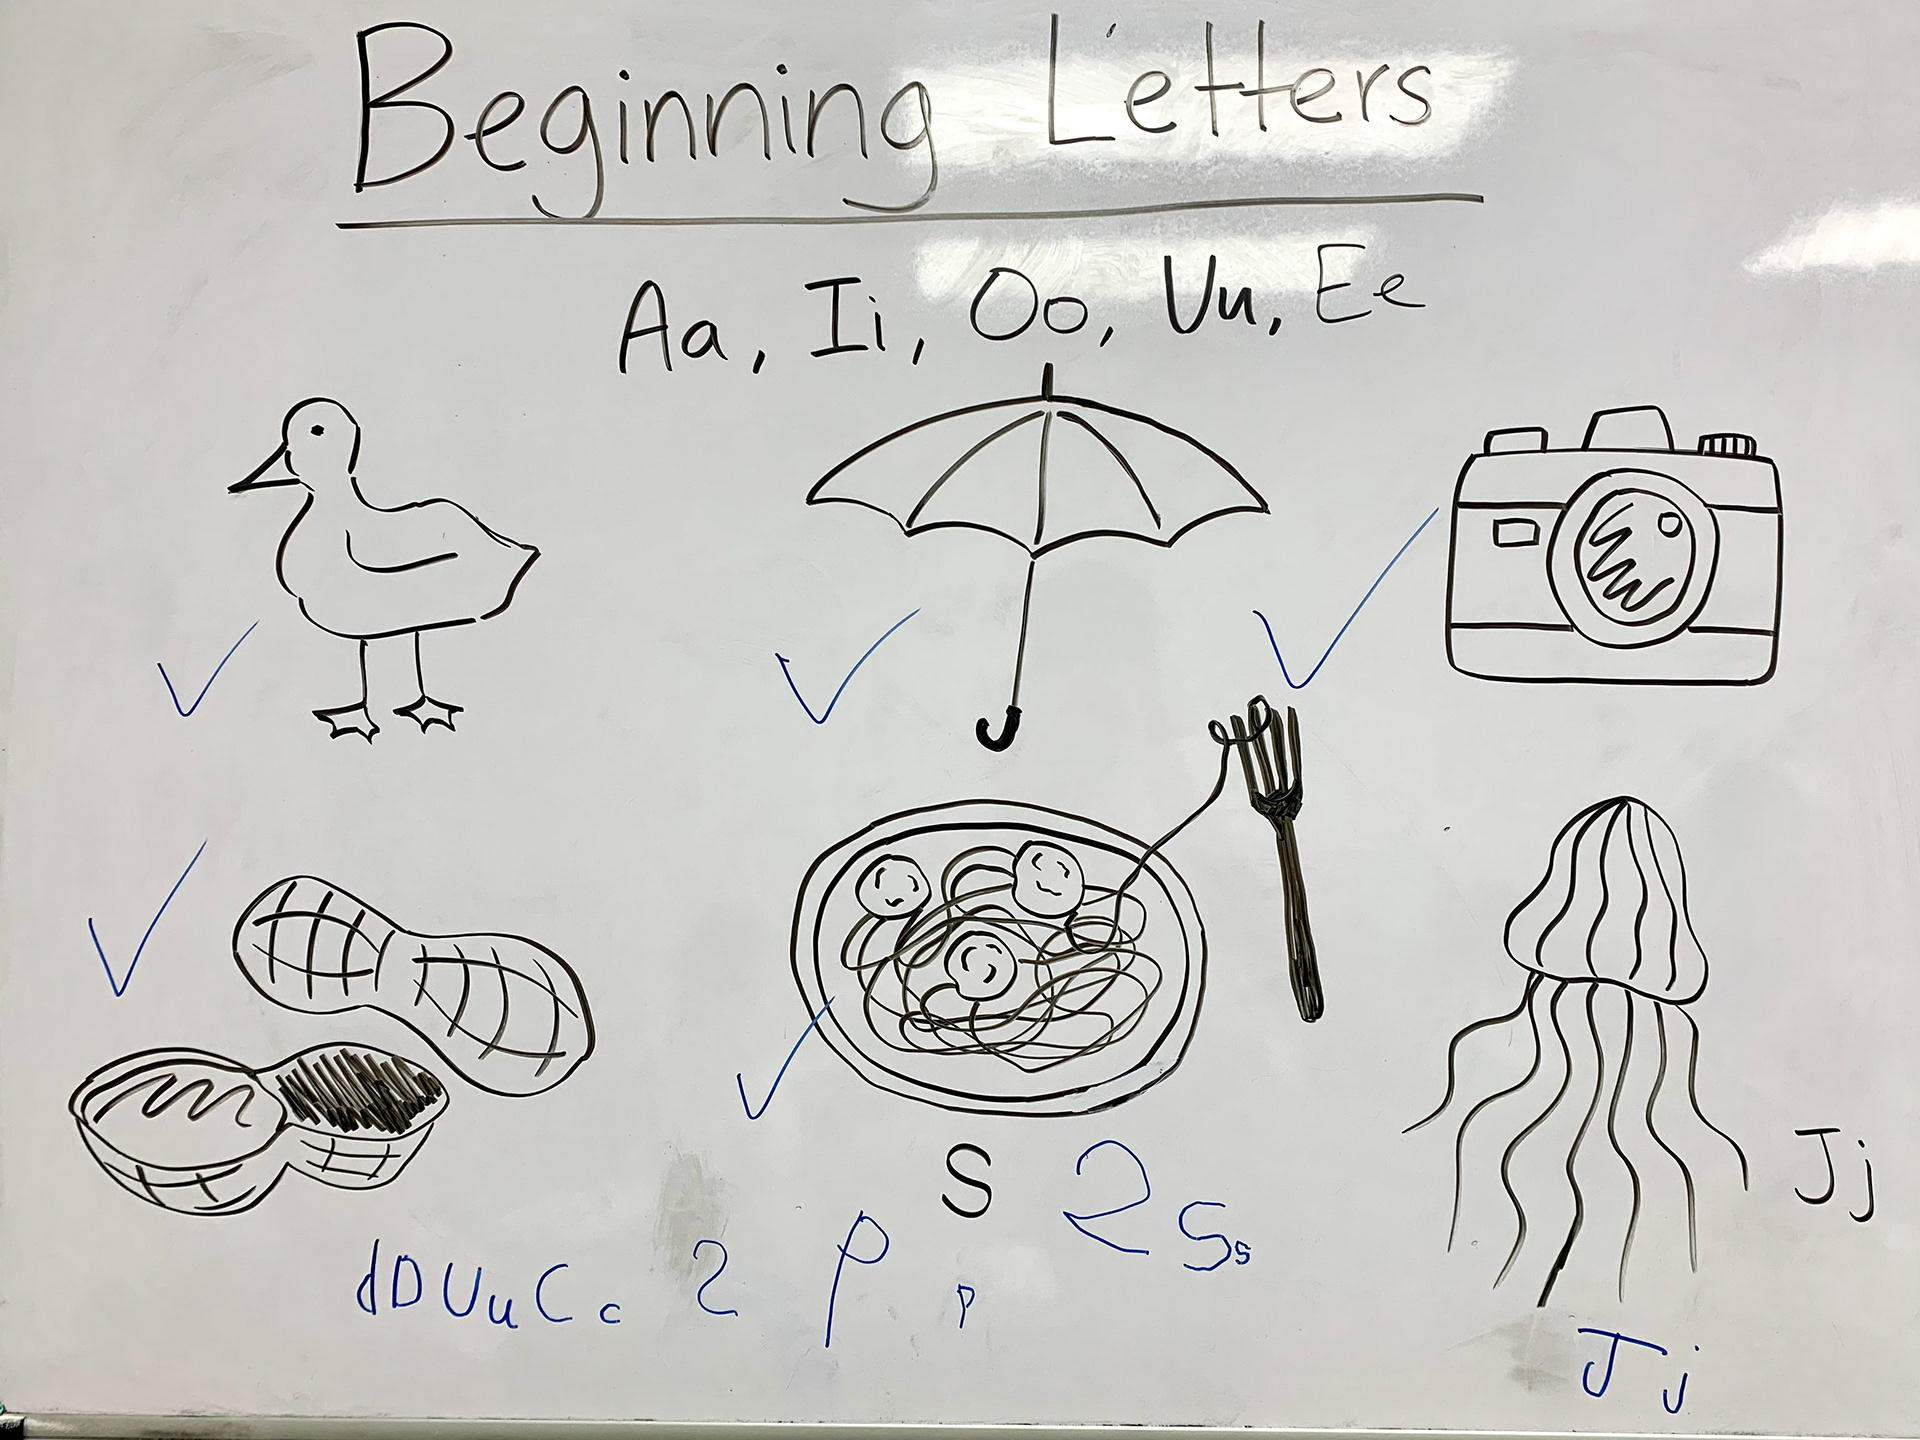 Beginning Letters
Aa, Ii, Oo, Uu, Ee
S 2 Ss
Jj
dDUuCc 2 P p
Jj